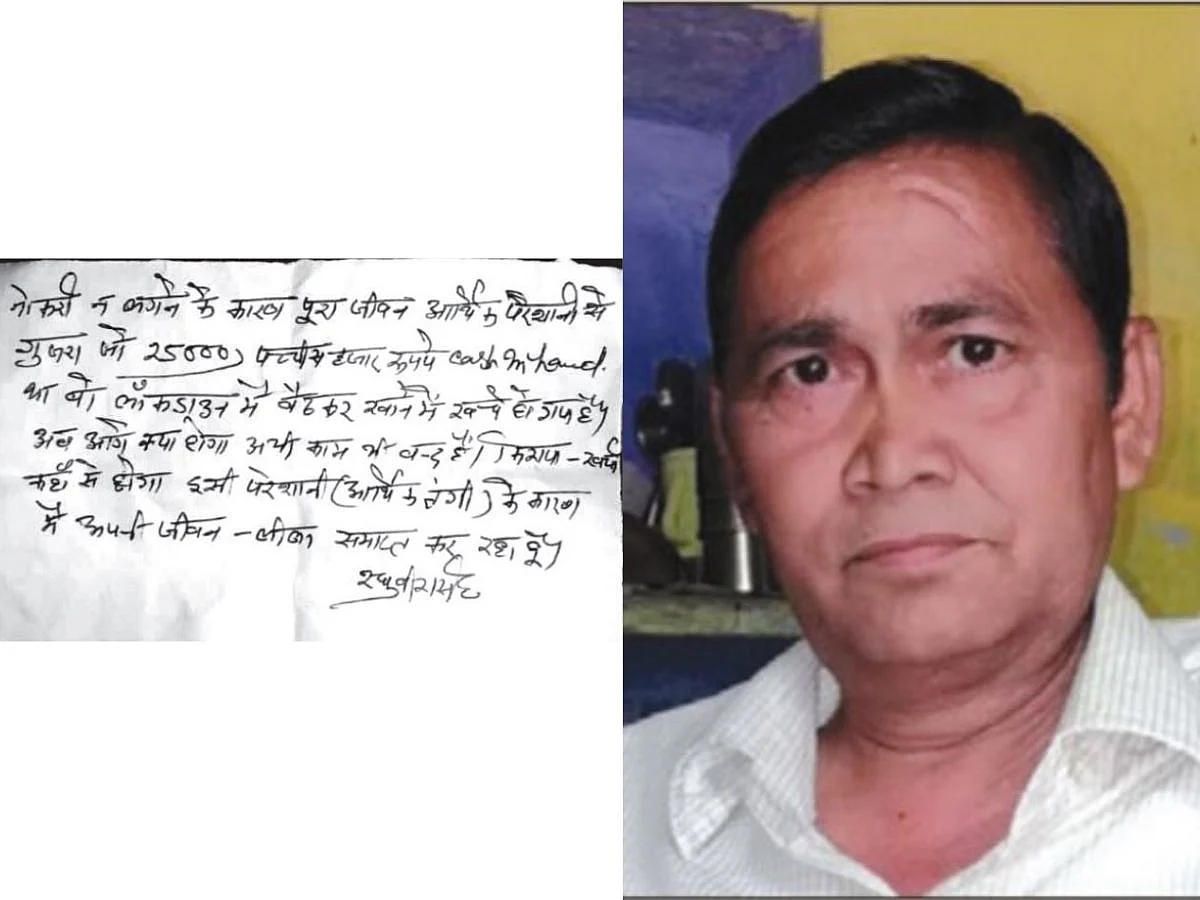 नोकरी न लगने के कारण पूरा जीवन आर्थिक परेशानी से
गुजरा जो 25000) पच्चीस हजार रूपये cash in hand.
था वो लॉकडाउन में बैठकर खाने में खर्च हो गए है।
अब आगे क्या होगा अभी काम भी बन्द है। किराया - खर्चा
कहाँ से होगा इसी परेशानी (आर्थिक तंगी) के कारण
मैं अपनी जीवन - लीला समाप्त कर रहा हूँ।